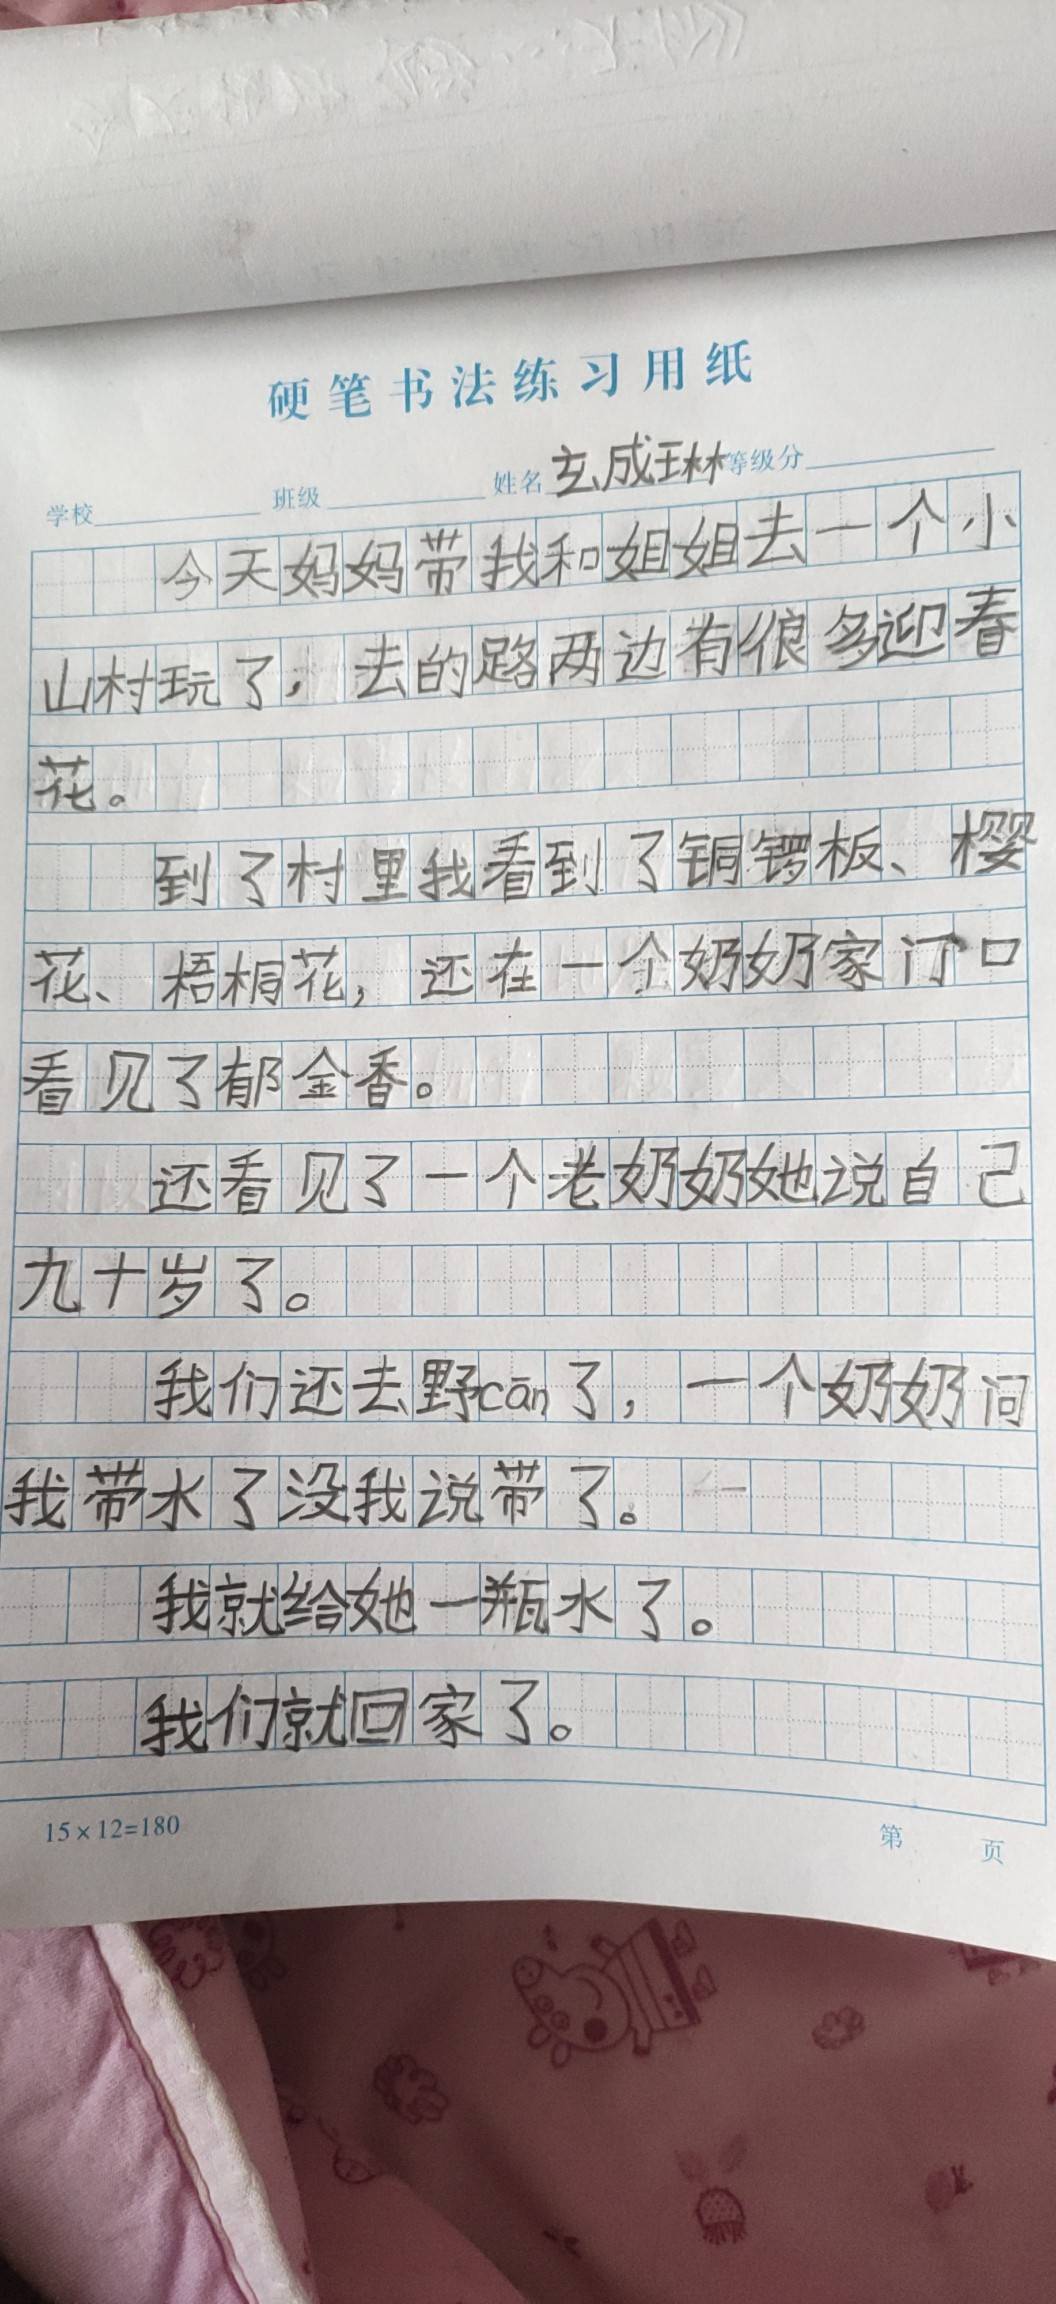 硬笔书法练习用纸
学校 班级 姓名 玄成琳 等级分
今天妈妈带我和姐姐去一个小
山村玩了，去的路两边有很多迎春
花。
到了村里我看到了铜锣板、樱
花、梧桐花，还在一个奶奶家门口
看见了郁金香。
还看见了一个老奶奶她说自己
九十岁了。
我们还去野cān了，一个奶奶问
我带水了没我说带了。
我就给她一瓶水了。
我们就回家了。
15×12=180
第 页